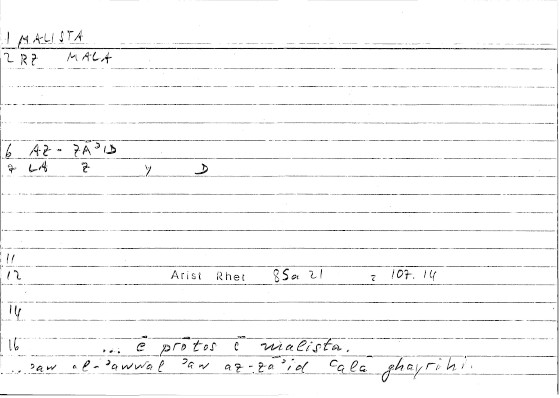 1 MALISTA
2 RZ MALA
6 AZ - ZĀʾID
7 LA Z Y D
11
12 Arist Rhet 85a 21 = 107.14
14
16 ... ē prōtos ē malista.
...ʾaw al-ʾawwal ʾaw az-zāʾid ʿalā ghayrihi.